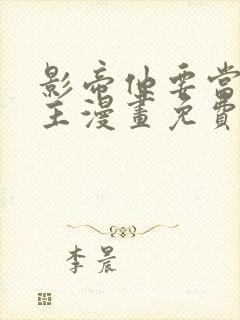 影帝他要當
主漫畫免費
李晨